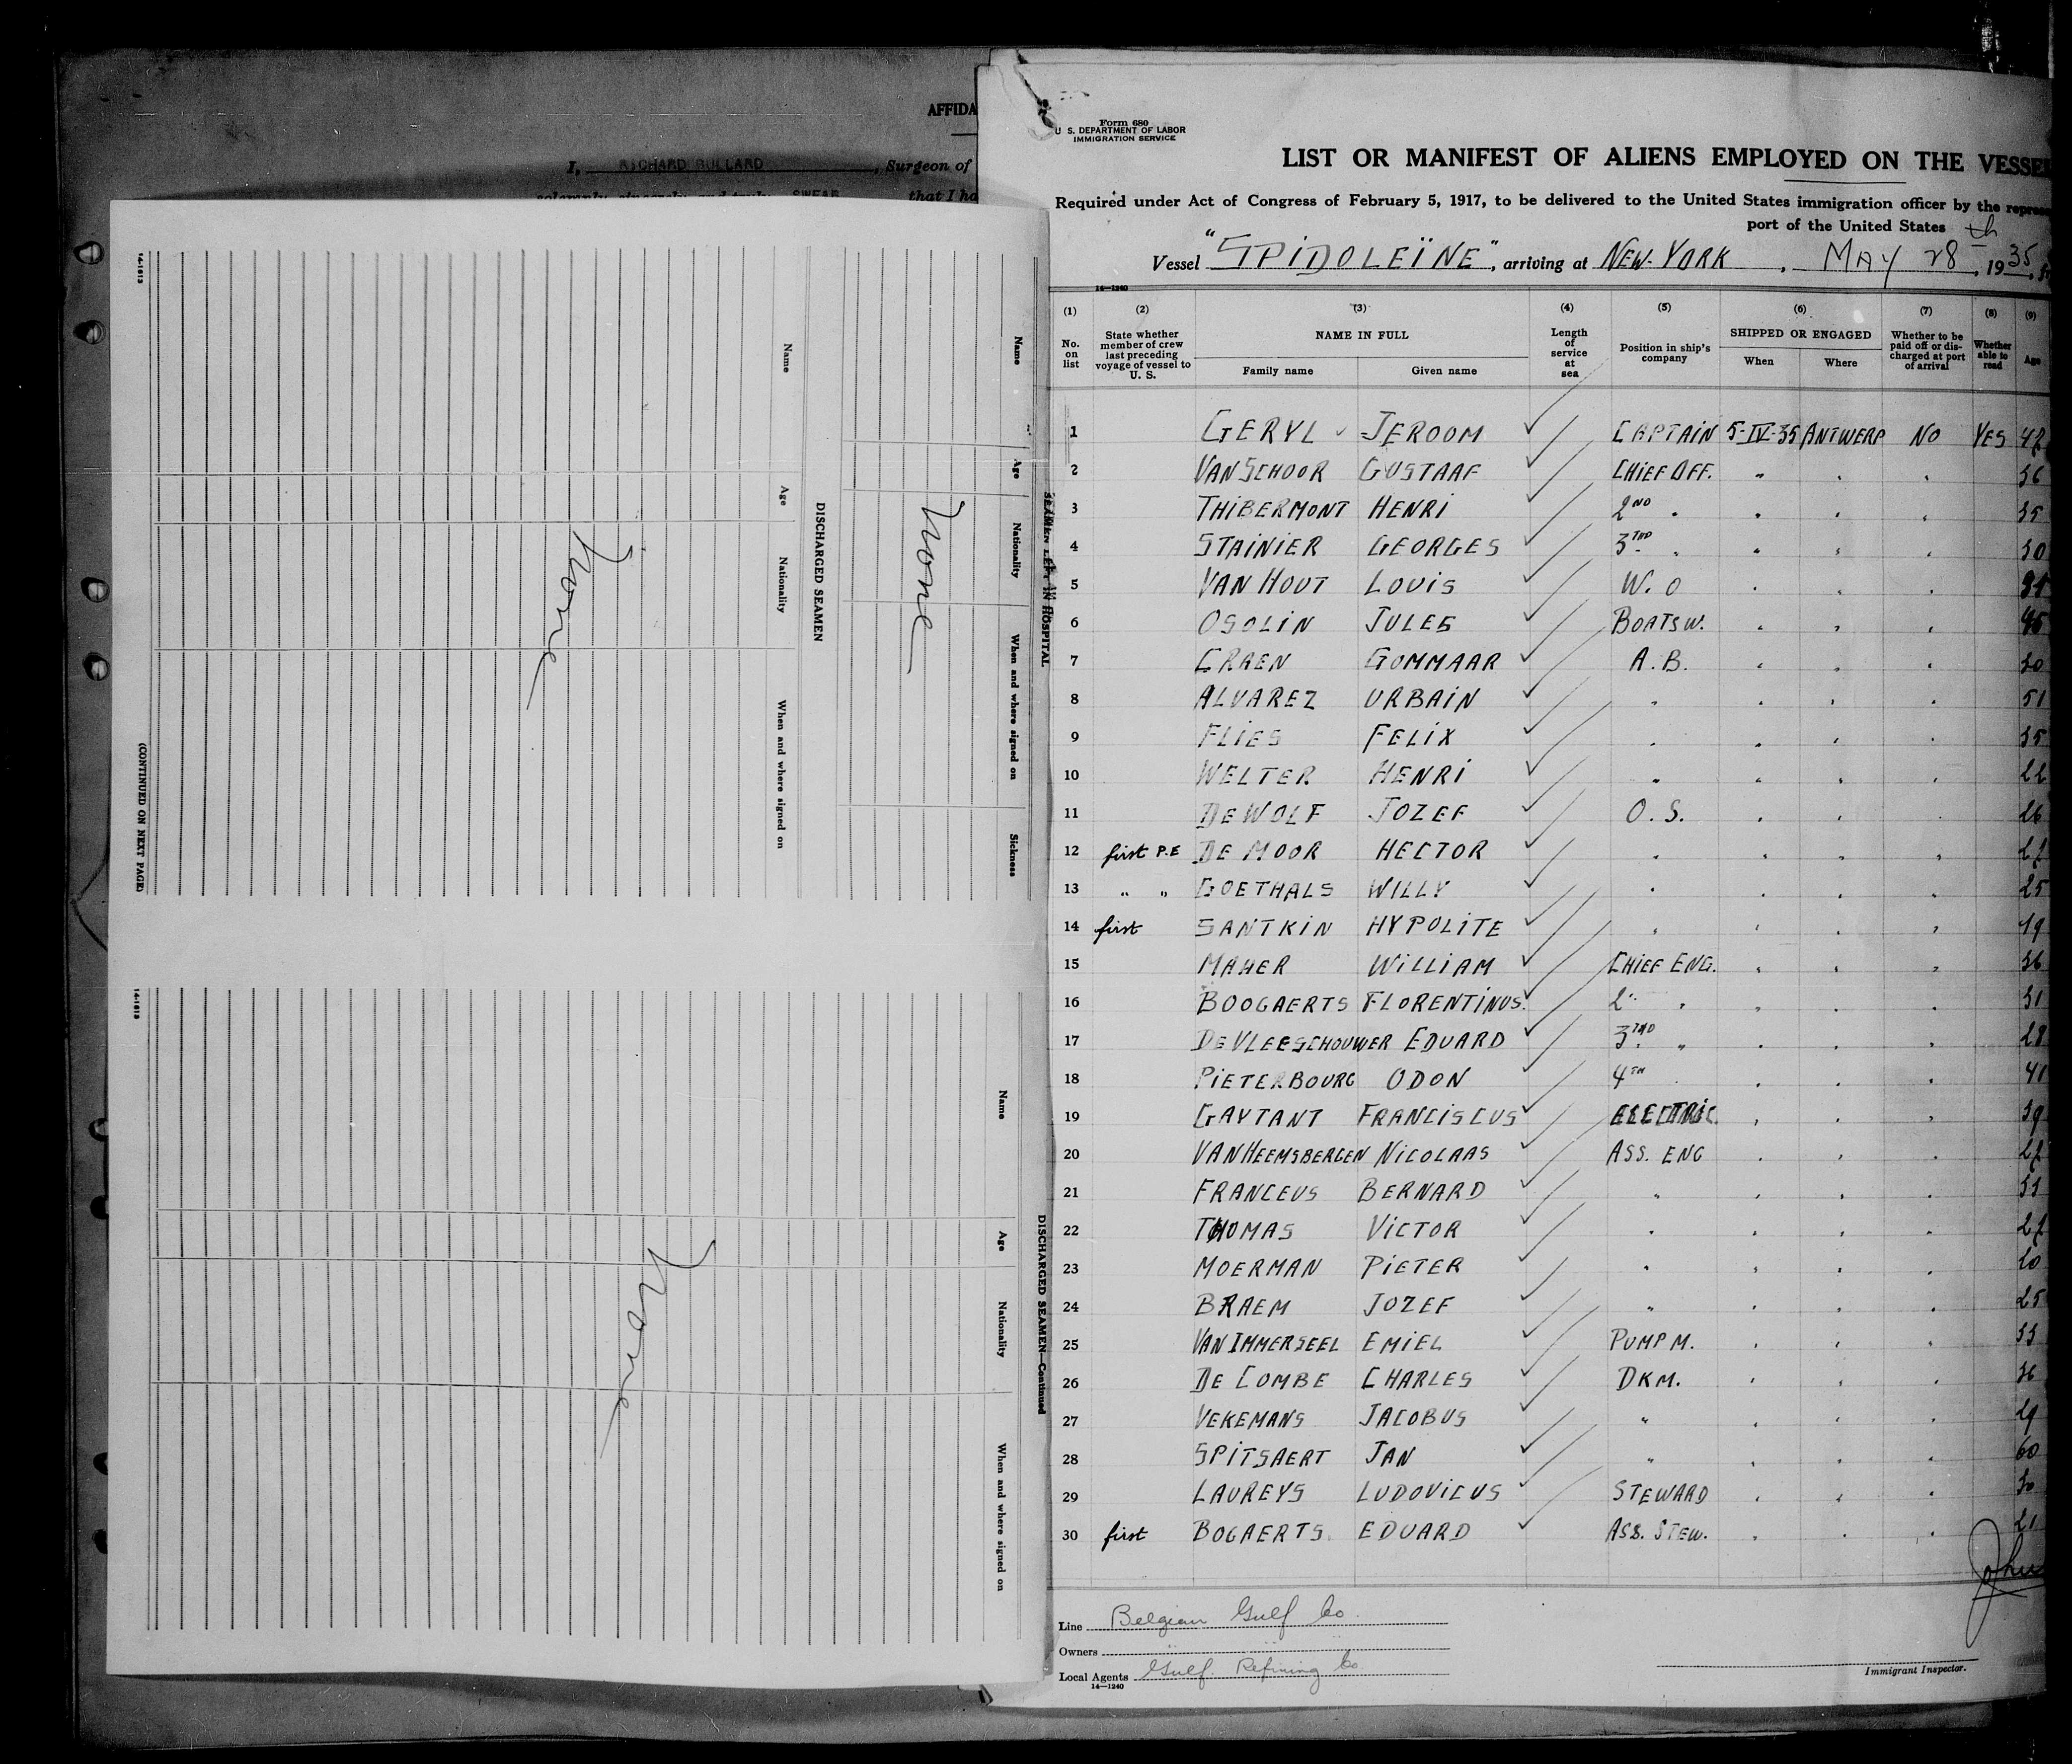 AFFIDA
I, RICHARD BULLARD, Surgeon of
solemnly, sincerely and truly SWEAR that I ha
14-1613
Name
Age
Nationality
When and where signed on
Sickness
None
SEAMEN LEFT IN HOSPITAL
DISCHARGED SEAMEN
Name
Age
Nationality
When and where signed on
None
(CONTINUED ON NEXT PAGE)
14-1613
DISCHARGED SEAMEN—Continued
Name
Age
Nationality
When and where signed on
None
Form 680
U. S. DEPARTMENT OF LABOR
IMMIGRATION SERVICE
LIST OR MANIFEST OF ALIENS EMPLOYED ON THE VESSEL
Required under Act of Congress of February 5, 1917, to be delivered to the United States immigration officer by the repres
port of the United States
Vessel "SPIDOLEÏNE", arriving at NEW-YORK, MAY 28th, 1935,
14—1240
(1) (2) (3) (4) (5) (6) (7) (8) (9)
No. on list
State whether member of crew last preceding voyage of vessel to U. S.
NAME IN FULL
Family name Given name
Length of service at sea
Position in ship's company
SHIPPED OR ENGAGED
When Where
Whether to be paid off or discharged at port of arrival
Whether able to read
Age
1 GERYL JEROOM CAPTAIN 5-IV-35 ANTWERP NO YES 42
2 VAN SCHOOR GUSTAAF CHIEF OFF. " " " 36
3 THIBERMONT HENRI 2ND " " " " 35
4 STAINIER GEORGES 3TRD " " " " 30
5 VAN HOUT LOUIS W. O " " "
6 OSOLIN JULES BOATSW. " " " 46
7 CRAEN GOMMAAR A. B. " " " 30
8 ALVAREZ URBAIN " " " " 51
9 FLIES FELIX " " " " 35
10 WELTER HENRI " " " " 22
11 DE WOLF JOZEF O. S. " " 26
12 first P.E DE MOOR HECTOR " " " " 27
13 " " GOETHALS WILLY " " " " 25
14 first SANTKIN HYPOLITE " " " " 19
15 MAHER WILLIAM CHIEF ENG. " " " 36
16 BOOGAERTS FLORENTINUS. 2" " " " " 31
17 DE VLEESCHOUWER EDUARD 3TRD " " " " 28
18 PIETERBOURG ODON 4TH " " " 41
19 GAYTANT FRANCISCUS ELECTRIC. " " " 39
20 VAN HEEMSBERGEN NICOLAAS ASS. ENG " " " 27
21 FRANCEUS BERNARD " " " " 33
22 THOMAS VICTOR " " " " 27
23 MOERMAN PIETER " " " " 20
24 BRAEM JOZEF " " " " 25
25 VAN IMMERSEEL EMIEL PUMP M. " " " 33
26 DE COMBE CHARLES DKM. " " " 36
27 VEKEMANS JACOBUS " " " " 29
28 SPITSAERT JAN " " " " 60
29 LAUREYS LUDOVICUS STEWARD " " " 30
30 first BOGAERTS EDUARD ASS. STEW. " " " 21
Line Belgian Gulf Co.
Owners
Local Agents Gulf Refining Co
14—1240
Immigrant Inspector.